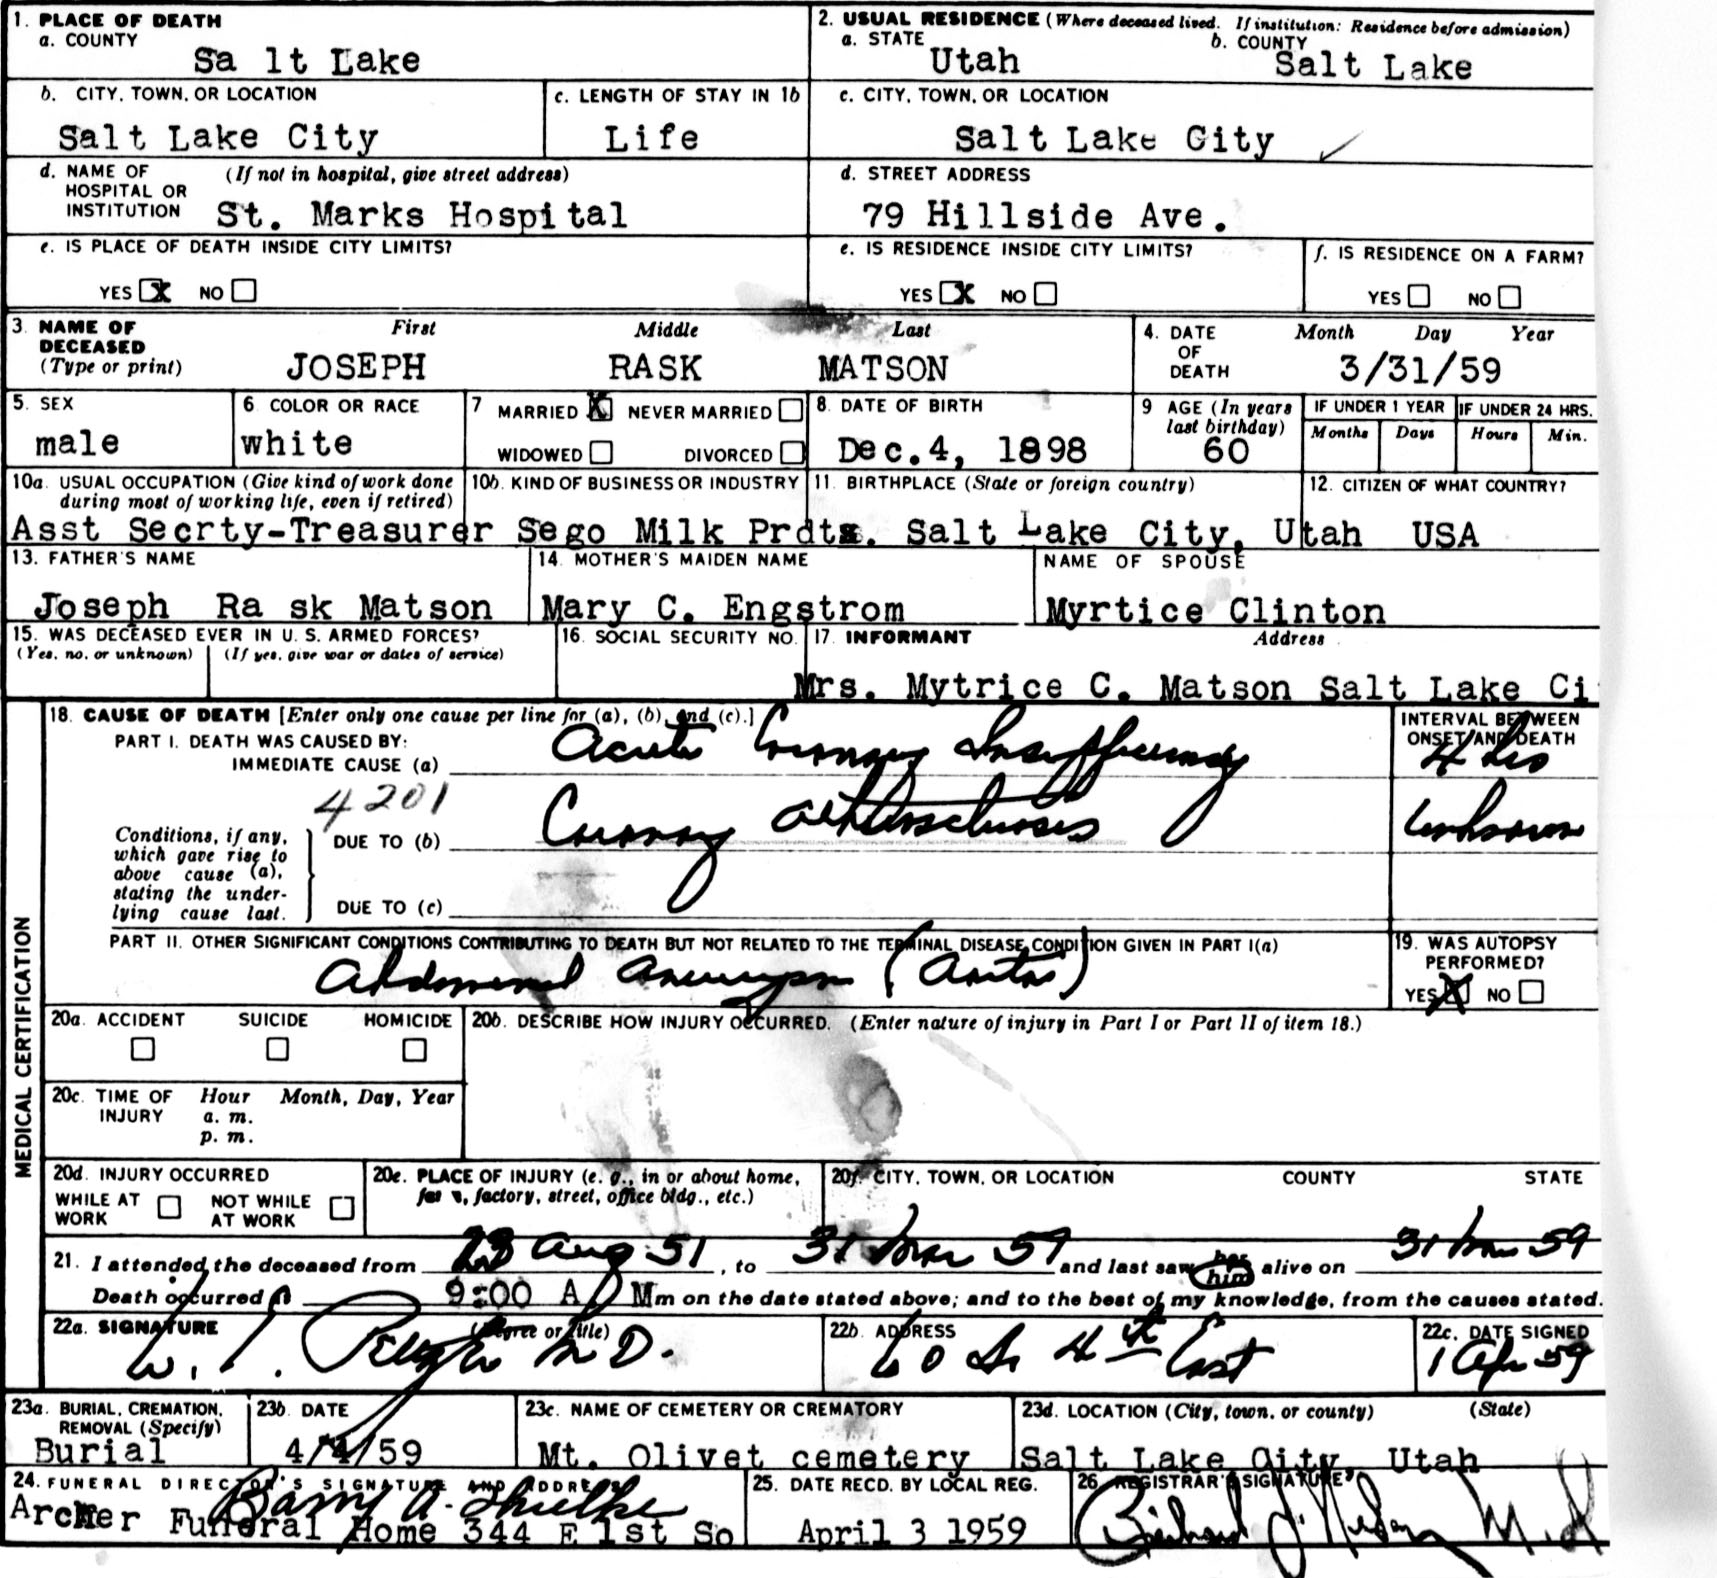 1. PLACE OF DEATH
a. COUNTY
Sa lt Lake
2. USUAL RESIDENCE (Where deceased lived. If institution: Residence before admission)
a. STATE
Utah
b. COUNTY
Salt Lake
b. CITY, TOWN, OR LOCATION
Salt Lake City
c. LENGTH OF STAY IN 1b
Life
c. CITY, TOWN, OR LOCATION
Salt Lake City
d. NAME OF HOSPITAL OR INSTITUTION (If not in hospital, give street address)
St. Marks Hospital
d. STREET ADDRESS
79 Hillside Ave.
e. IS PLACE OF DEATH INSIDE CITY LIMITS?
YES X NO
e. IS RESIDENCE INSIDE CITY LIMITS?
YES X NO
f. IS RESIDENCE ON A FARM?
YES NO
3. NAME OF DECEASED (Type or print)
First Middle Last
JOSEPH RASK MATSON
4. DATE OF DEATH
Month Day Year
3/31/59
5. SEX
male
6. COLOR OR RACE
white
7 MARRIED X NEVER MARRIED
WIDOWED DIVORCED
8. DATE OF BIRTH
Dec.4, 1898
9 AGE (In years last birthday)
60
IF UNDER 1 YEAR
Months Days
IF UNDER 24 HRS.
Hours Min.
10a. USUAL OCCUPATION (Give kind of work done during most of working life, even if retired)
Asst Secrty-Treasurer
10b. KIND OF BUSINESS OR INDUSTRY
Sego Milk Prdts.
11. BIRTHPLACE (State or foreign country)
Salt Lake City, Utah
12. CITIZEN OF WHAT COUNTRY?
USA
13. FATHER'S NAME
Joseph Ra sk Matson
14. MOTHER'S MAIDEN NAME
Mary C. Engstrom
NAME OF SPOUSE
Myrtice Clinton
15. WAS DECEASED EVER IN U. S. ARMED FORCES?
(Yes, no, or unknown) (If yes, give war or dates of service)
16. SOCIAL SECURITY NO.
17. INFORMANT Address
Mrs. Mytrice C. Matson Salt Lake Ci
MEDICAL CERTIFICATION
18. CAUSE OF DEATH [Enter only one cause per line for (a), (b), and (c).]
PART I. DEATH WAS CAUSED BY:
IMMEDIATE CAUSE (a) Acute Coronary Insufficiency
INTERVAL BETWEEN ONSET AND DEATH
4 hrs
4201
Conditions, if any, which gave rise to above cause (a), stating the underlying cause last.
DUE TO (b) Coronary Atherosclerosis
Unknown
DUE TO (c)
PART II. OTHER SIGNIFICANT CONDITIONS CONTRIBUTING TO DEATH BUT NOT RELATED TO THE TERMINAL DISEASE CONDITION GIVEN IN PART I(a)
Abdominal aneurysm (Aorta)
19. WAS AUTOPSY PERFORMED?
YES X NO
20a. ACCIDENT SUICIDE HOMICIDE
20b. DESCRIBE HOW INJURY OCCURRED. (Enter nature of injury in Part I or Part II of item 18.)
20c. TIME OF INJURY Hour Month, Day, Year
a. m.
p. m.
20d. INJURY OCCURRED
WHILE AT WORK NOT WHILE AT WORK
20e. PLACE OF INJURY (e. g., in or about home, farm, factory, street, office bldg., etc.)
20f. CITY, TOWN, OR LOCATION COUNTY STATE
21. I attended the deceased from 28 Aug 51, to 31 Mar 59 and last saw her him alive on 31 Mar 59
Death occurred 9:00 A M m on the date stated above; and to the best of my knowledge, from the causes stated.
22a. SIGNATURE (Degree or title)
M D.
22b. ADDRESS
60 So 4th East
22c. DATE SIGNED
1 Apr 59
23a. BURIAL, CREMATION, REMOVAL (Specify)
Burial
23b. DATE
4/4/59
23c. NAME OF CEMETERY OR CREMATORY
Mt. Olivet cemetery
23d. LOCATION (City, town, or county) (State)
Salt Lake City, Utah
24. FUNERAL DIRECTOR'S SIGNATURE AND ADDRESS
Archer Funeral Home 344 E 1st So
25. DATE RECD. BY LOCAL REG.
April 3 1959
26 REGISTRAR'S SIGNATURE